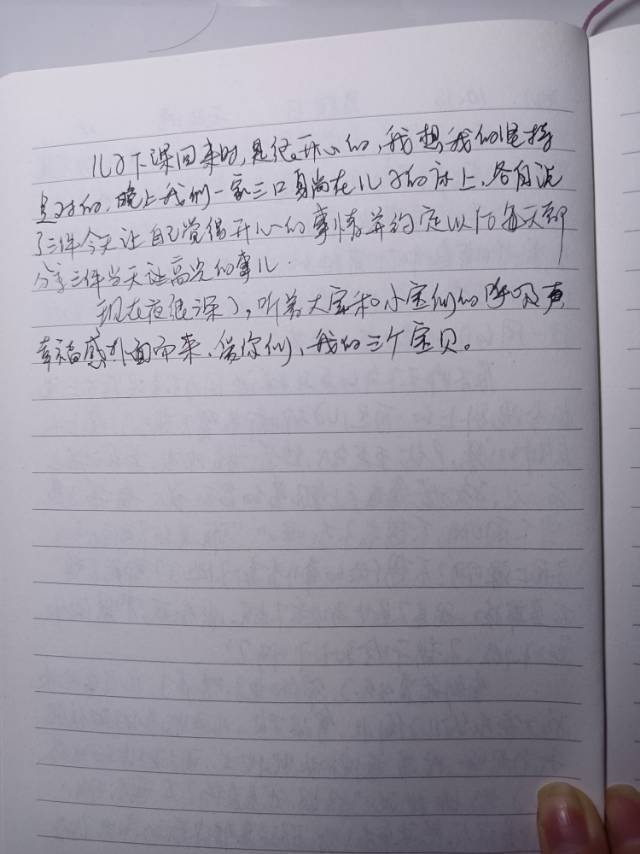 儿子下课回来时，是很开心的，我想我们坚持
是对的，晚上我们一家三口躺在儿子的床上，各自说
了三件今天让自己觉得开心的事情并约定以后每天都
分享三件当天最高光的事儿.
现在夜很深了，听着大宝和小宝们的呼吸声
幸福感扑面而来、爱你们，我的三个宝贝。